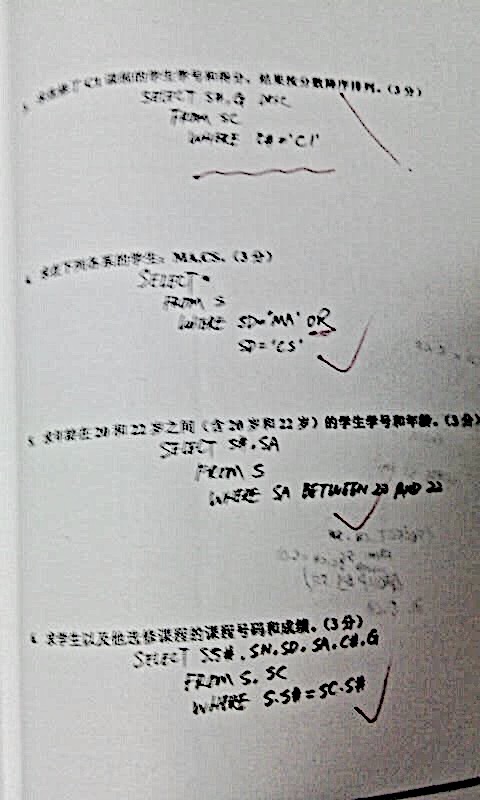 求选修了C1课程的学生学号和得分，结果按分数降序排列。(3分)
SELECT S#,G DESC
FROM SC
WHERE C#='C1'
求在下列各系的学生：MA,CS。(3分)
SELECT *
FROM S
WHERE SD='MA' OR
SD='CS'
5. 求年龄在20和22岁之间（含20岁和22岁）的学生学号和年龄。(3分)
SELECT S#,SA
FROM S
WHERE SA BETWEEN 20 AND 22
求学生以及他选修课程的课程号码和成绩。(3分)
SELECT SS#,SN,SD,SA,C#,G
FROM S,SC
WHERE S.S#=SC.S#